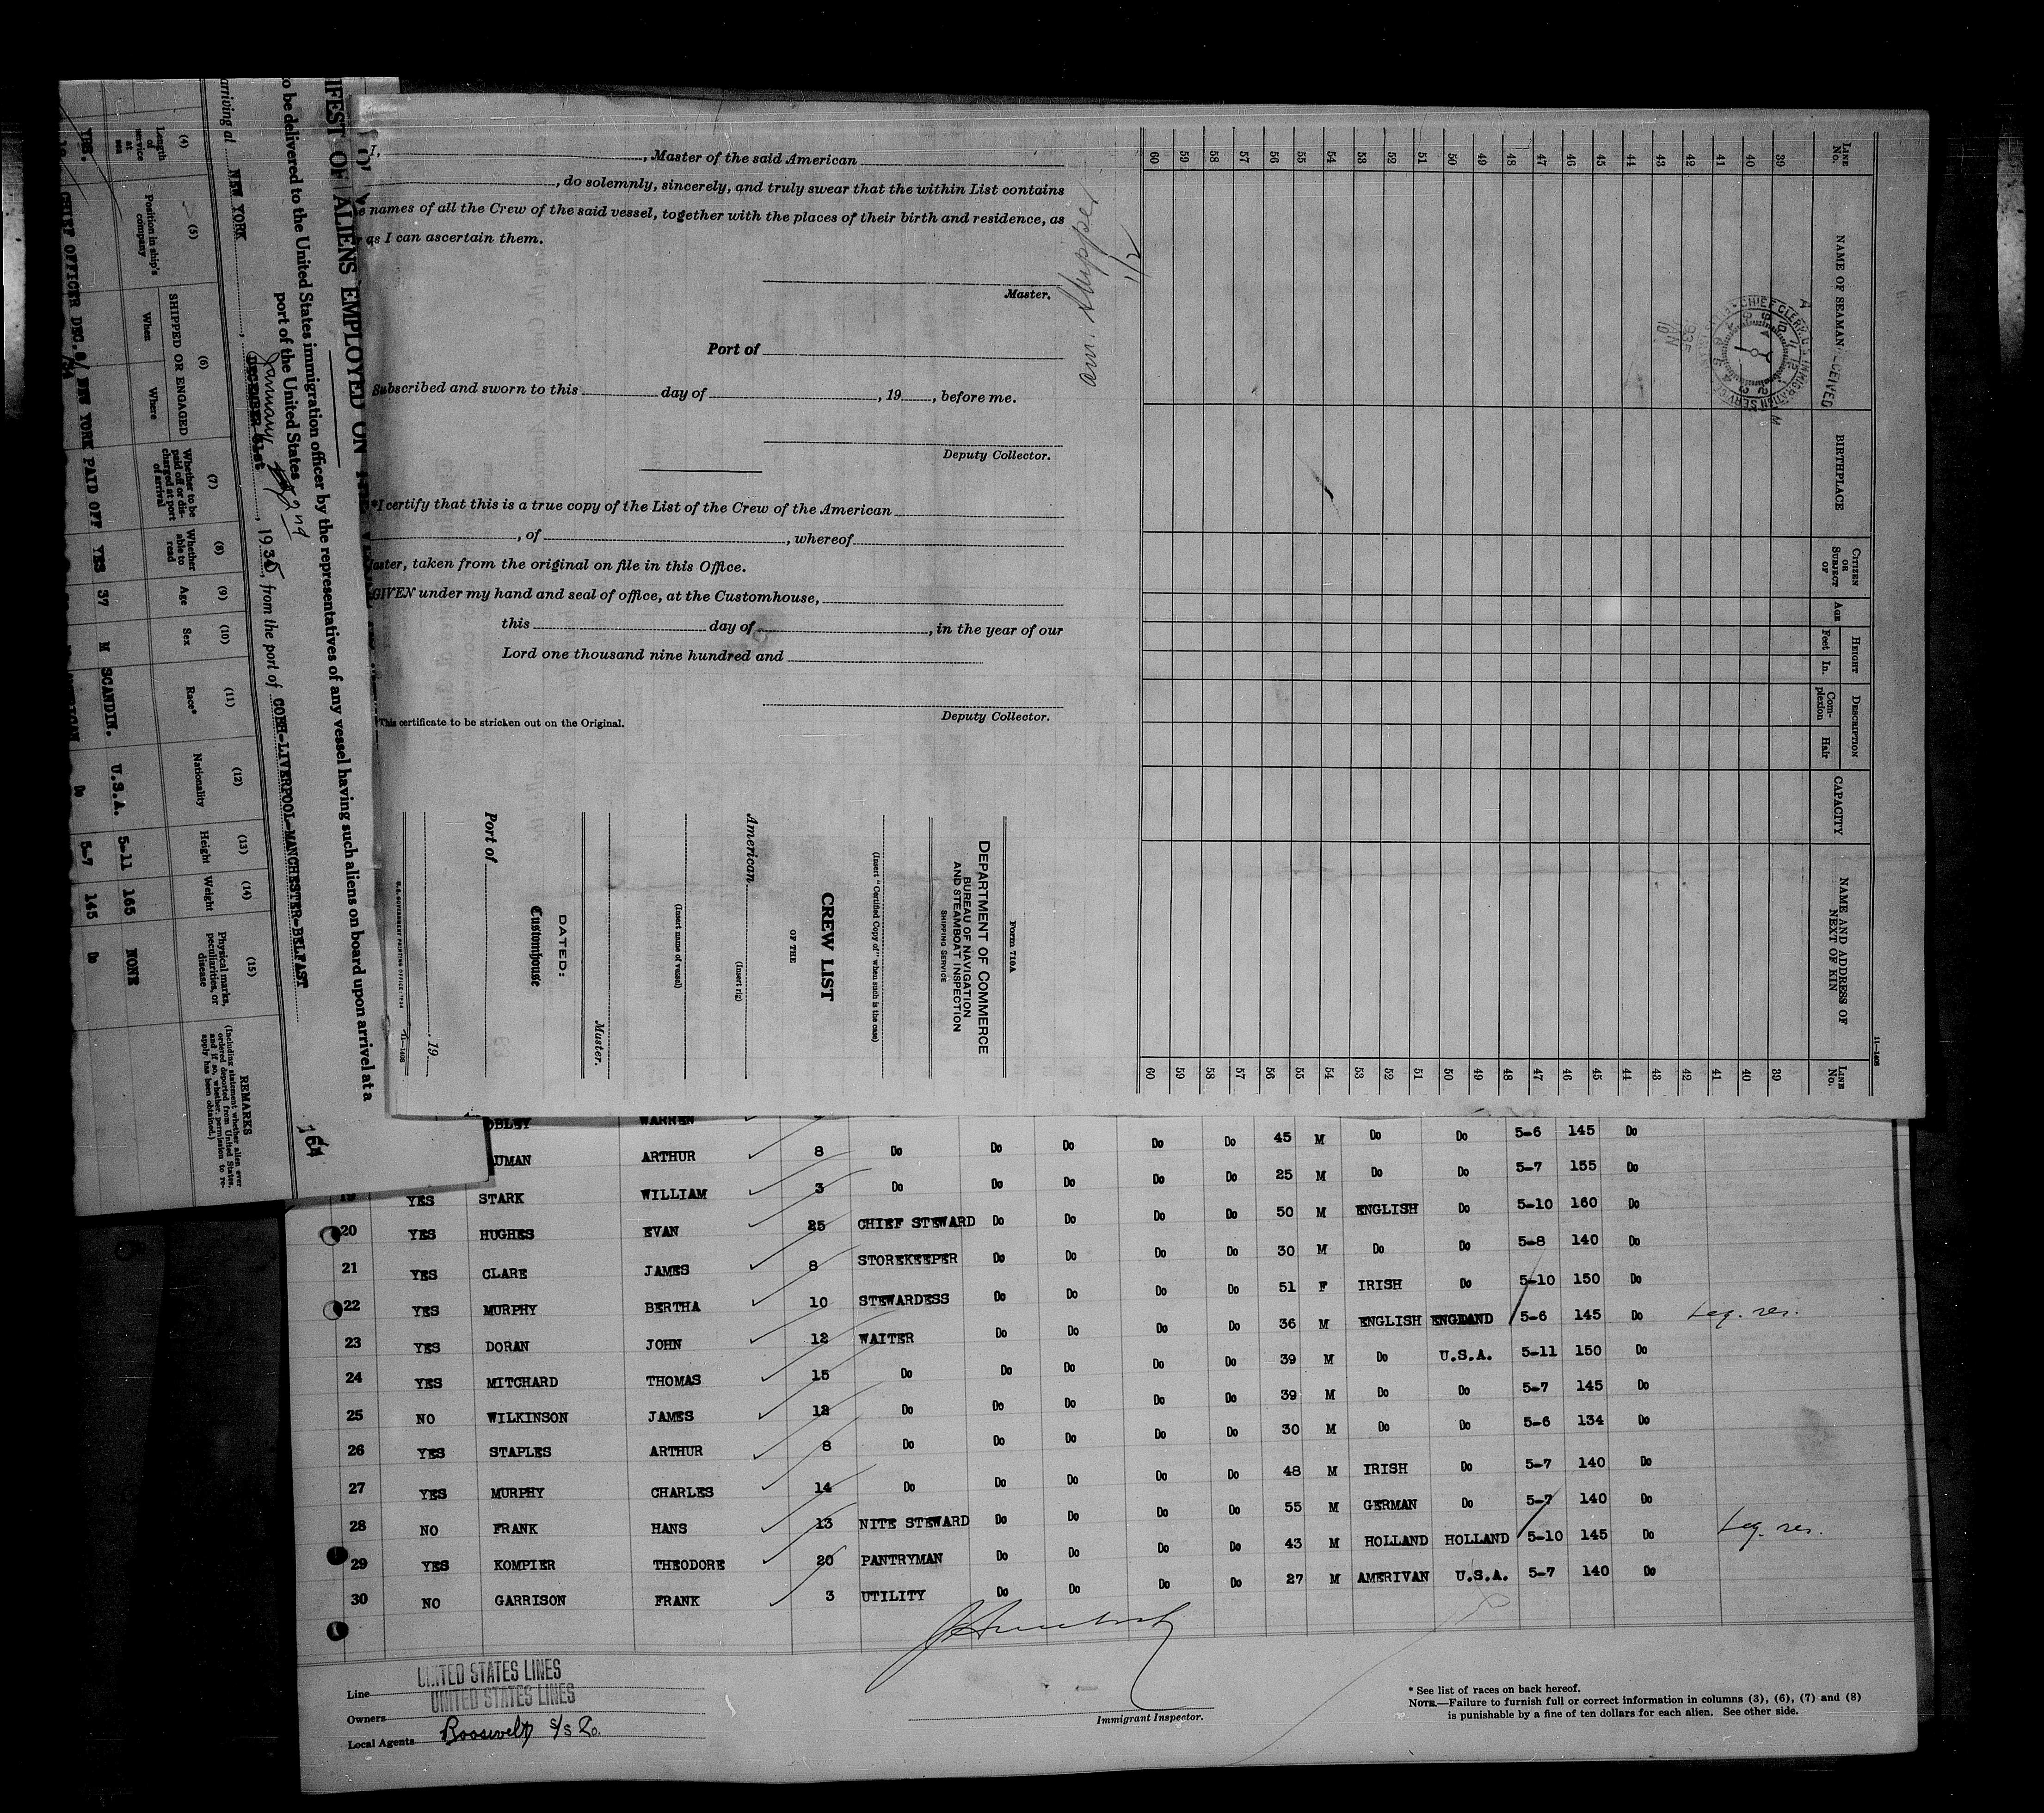 I, , Master of the said American
, do solemnly, sincerely, and truly swear that the within List contains
names of all the Crew of the said vessel, together with the places of their birth and residence, as
as I can ascertain them.
Master.
Port of
Subscribed and sworn to this day of , 19 , before me.
Deputy Collector.
*I certify that this is a true copy of the List of the Crew of the American
, of , whereof
aster, taken from the original on file in this Office.
GIVEN under my hand and seal of office, at the Customhouse,
this day of , in the year of our
Lord one thousand nine hundred and
Deputy Collector.
This certificate to be stricken out on the Original.
am. Shipper
1/2
Form 710A
DEPARTMENT OF COMMERCE
BUREAU OF NAVIGATION
AND STEAMBOAT INSPECTION
SHIPPING SERVICE
(Insert "Certified Copy of" when such is the case)
CREW LIST
OF THE
American
(Insert rig)
(Insert name of vessel)
Master.
DATED:
Customhouse
Port of
, 19
11—1408
11—1408
LINE No.
NAME OF SEAMAN
BIRTHPLACE
CITIZEN OR SUBJECT OF
AGE
HEIGHT
Feet In.
DESCRIPTION
Complexion Hair
CAPACITY
NAME AND ADDRESS OF NEXT OF KIN
LINE No.
39 40 41 42 43 44 45 46 47 48 49 50 51 52 53 54 55 56 57 58 59 60
39 40 41 42 43 44 45 46 47 48 49 50 51 52 53 54 55 56 57 58 59 60
IFEST OF ALIENS EMPLOYED ON
o be delivered to the United States immigration officer by the representatives of any vessel having such aliens on board upon arrival at a
port of the United States
arriving at NEW YORK , DECEMBER 31st January 2nd , 1935, from the port of COBH-LIVERPOOL-MANCHESTER-BELFAST
164
(4) Length of service at sea
(5) Position in ship's company
(6) SHIPPED OR ENGAGED
When Where
(7) Whether to be paid off or discharged at port of arrival
(8) Whether able to read
(9) Age
(10) Sex
(11) Race*
(12) Nationality
(13) Height
(14) Weight
(15) Physical marks, peculiarities, or disease
REMARKS
(Including statement whether alien ever ordered deported from United States, and if so, whether permission to reapply has been obtained.)
YRS. CHIEF OFFICER DEC. NEW YORK PAID OFF YES 37 M SCANDIN. U.S.A. 5-11 165 NONE
Do 5-7 145 Do
OBLEY WARREN
AUMAN ARTHUR 8 Do Do Do Do Do 45 M Do Do 5-6 145 Do
19 YES STARK WILLIAM 3 Do Do Do Do Do 25 M Do Do 5-7 155 Do
20 YES HUGHES EVAN 25 CHIEF STEWARD Do Do Do Do 50 M ENGLISH Do 5-10 160 Do
21 YES CLARE JAMES 8 STOREKEEPER Do Do Do Do 30 M Do Do 5-8 140 Do
22 YES MURPHY BERTHA 10 STEWARDESS Do Do Do Do 51 F IRISH Do 5-10 150 Do
23 YES DORAN JOHN 12 WAITER Do Do Do Do 36 M ENGLISH ENGLAND 5-6 145 Do Leg. res.
24 YES MITCHARD THOMAS 15 Do Do Do Do Do 39 M Do U.S.A. 5-11 150 Do
25 NO WILKINSON JAMES 12 Do Do Do Do Do 39 M Do Do 5-7 145 Do
26 YES STAPLES ARTHUR 8 Do Do Do Do Do 30 M Do Do 5-6 134 Do
27 YES MURPHY CHARLES 14 Do Do Do Do Do 48 M IRISH Do 5-7 140 Do
28 NO FRANK HANS 13 NITE STEWARD Do Do Do Do 55 M GERMAN Do 5-7 140 Do
29 YES KOMPIER THEODORE 20 PANTRYMAN Do Do Do Do 43 M HOLLAND HOLLAND 5-10 145 Do Leg. res.
30 NO GARRISON FRANK 3 UTILITY Do Do Do Do 27 M AMERIVAN U.S.A. 5-7 140 Do
Line UNITED STATES LINES
Owners UNITED STATES LINES
Local Agents Roosevelt S/S Co.
Immigrant Inspector.
* See list of races on back hereof.
NOTE.—Failure to furnish full or correct information in columns (3), (6), (7) and (8)
is punishable by a fine of ten dollars for each alien. See other side.